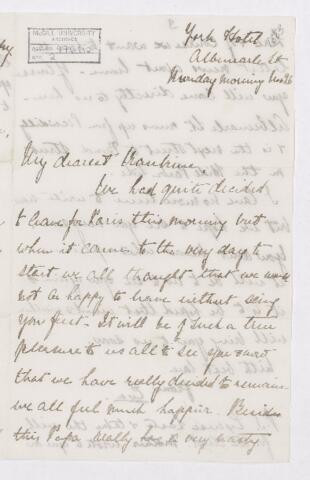 McGILL UNIVERSITY
ARCHIVES
York Hotel
Albemarle St
Monday morning
My dearest
We had quite decided
to leave for Paris this morning but
when it came to the very day to
start we all thought that we were
not as happy to leave without seeing
you first - It will be of such a true
pleasure to us all to see you and
that we have really decided to remain
we all feel much happier. Besides
this Papa really has a very nasty